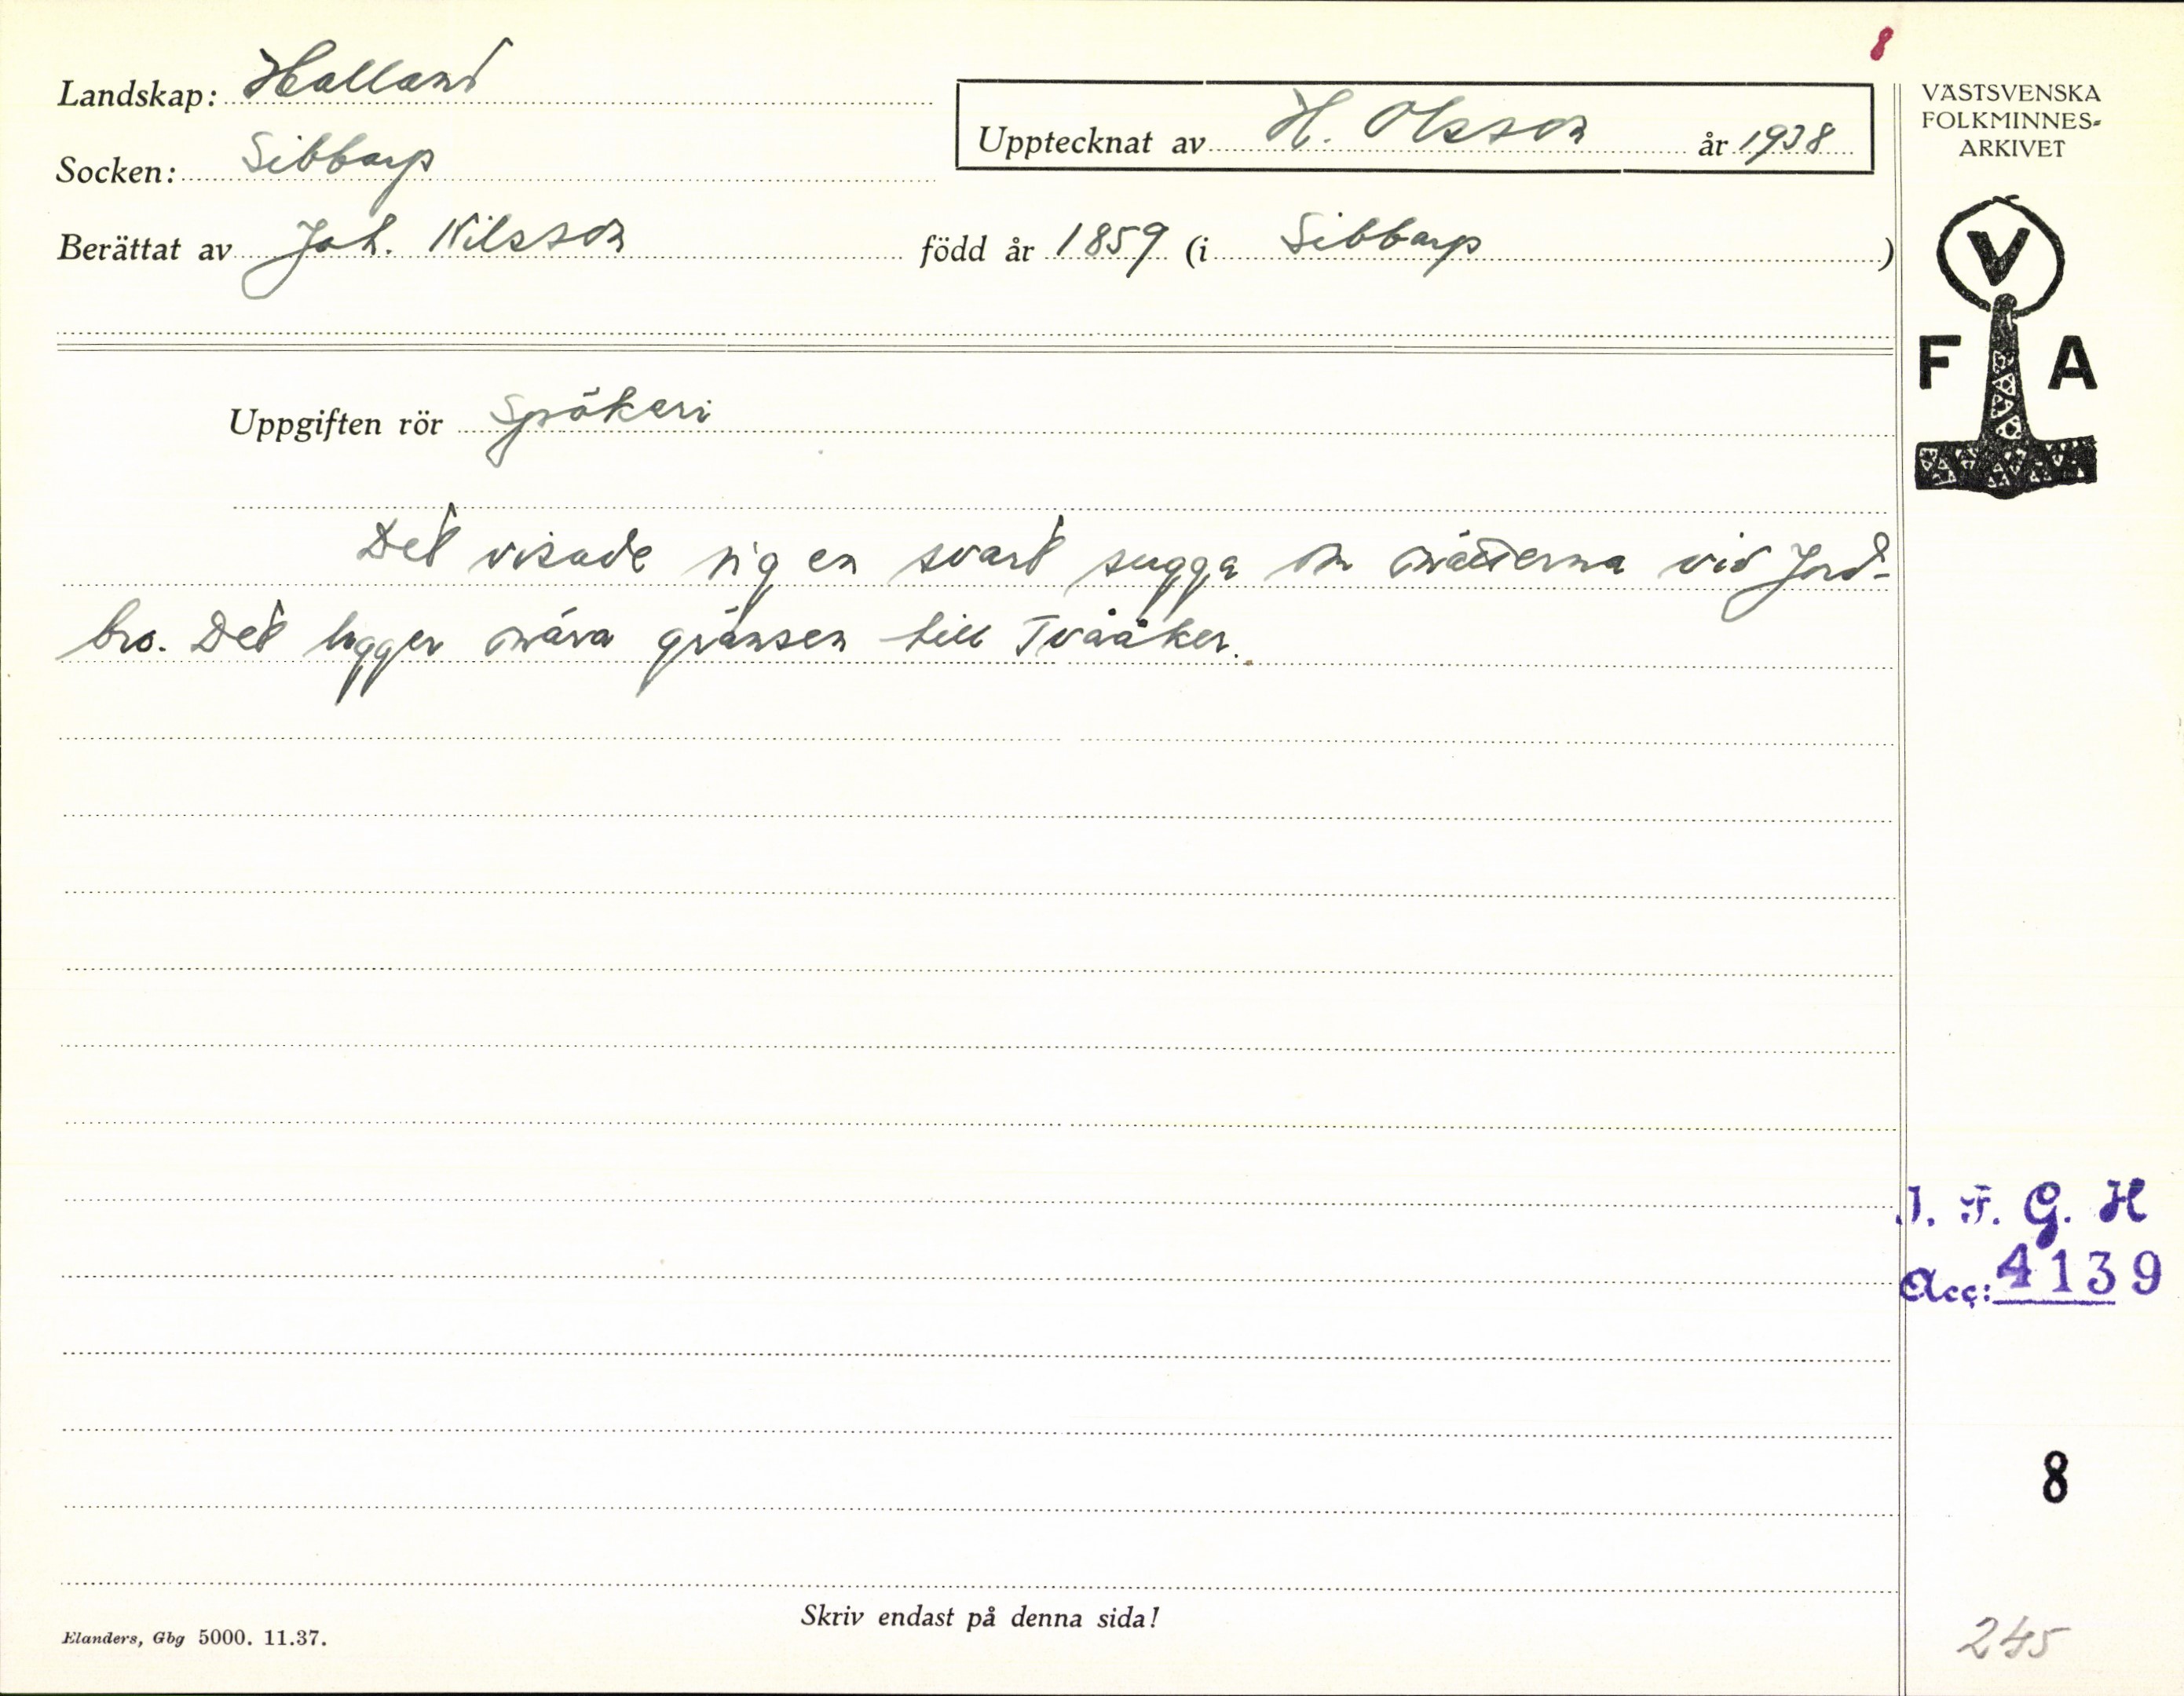 8
Landskap: Halland
Upptecknat av H. Olsson år 1938
Socken: Sibbarp
Berättat av Joh. Nilsson född år 1859 (i Sibbarp )
VÄSTSVENSKA
FOLKMINNES-
ARKIVET
V
F A
Uppgiften rör Spökeri
Det visade sig en svart sugga om nätterna vid Jord-
bro. Det ligger nära gränsen till Tvååker.
I. F. G. H
Acc: 4139
8
Skriv endast på denna sida!
Elanders, Gbg 5000. 11.37.
245